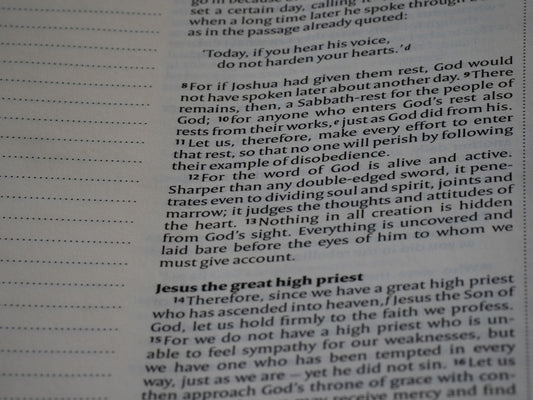 set a certain day, calling it
when a long time later he spoke through
as in the passage already quoted:
‘Today, if you hear his voice,
do not harden your hearts.’d
8For if Joshua had given them rest, God would
not have spoken later about another day. 9There
remains, then, a Sabbath-rest for the people of
God; 10for anyone who enters God’s rest also
rests from their works,e just as God did from his.
11Let us, therefore, make every effort to enter
that rest, so that no one will perish by following
their example of disobedience.
12For the word of God is alive and active.
Sharper than any double-edged sword, it pene-
trates even to dividing soul and spirit, joints and
marrow; it judges the thoughts and attitudes of
the heart. 13Nothing in all creation is hidden
from God’s sight. Everything is uncovered and
laid bare before the eyes of him to whom we
must give account.
Jesus the great high priest
14Therefore, since we have a great high priest
who has ascended into heaven,f Jesus the Son of
God, let us hold firmly to the faith we profess.
15For we do not have a high priest who is un-
able to feel sympathy for our weaknesses, but
we have one who has been tempted in every
way, just as we are – yet he did not sin. 16Let us
then approach God’s throne of grace with con-
may receive mercy and find